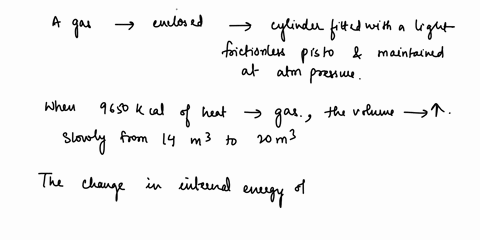 A gas → enclosed → cylinder fitted with a light
frictionless pisto & maintained
at atm pressure.
When 9650 Kcal of heat → gas., the volume → ↑.
Slowly from 14 m³ to 20m³
The change in internal energy of